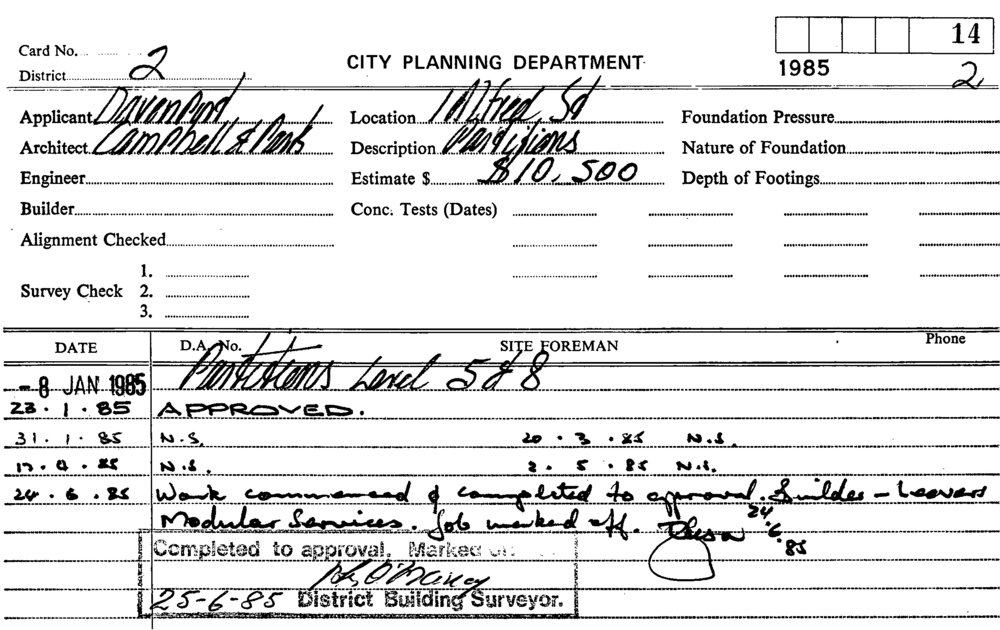 14
Card No. 2
CITY PLANNING DEPARTMENT
1985 2
District
Applicant Davenport Location 1 Alfred St Foundation Pressure
Architect Campbell & Description Partitions Nature of Foundation
Engineer Estimate $ $10,500 Depth of Footings
Builder Conc. Tests (Dates)
Alignment Checked
1.
Survey Check 2.
3.
DATE D.A. No. SITE FOREMAN Phone
- 8 JAN 1985 Partitions Level 5 & 8
23.1.85 APPROVED.
31.1.85 N.S. 20.3.85 N.S.
17.4.85 N.S. 2.5.85 N.S.
24.6.85 Work commenced & completed to approval. Builder - Leavers
Modular Services. Job marked off. 24.6.85
Completed to approval. Marked
25-6-85 District Building Surveyor.